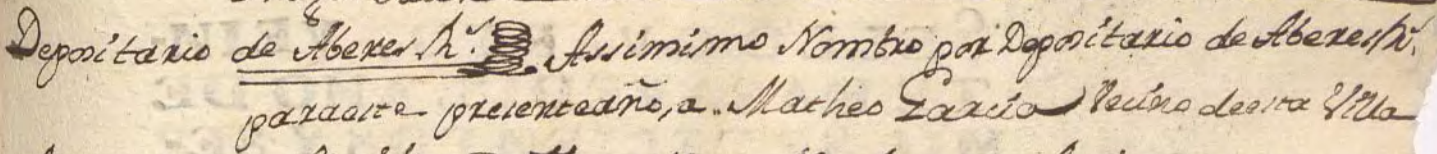 Depositario de Aberes Rs. Assimismo Nombro por Depositario de Aberes Rs.
para este presente año, a. Matheo Garcia Vecino de esta Villa